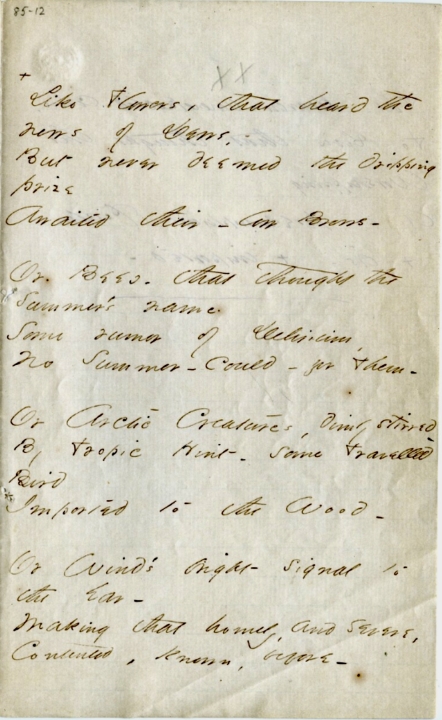 85-12
XX
+
Like Flowers, that heard the
news of Dews,
But never deemed the dripping
prize
Awaited their - low Brows -
Or Bees - that thought the
Summer's name
Some rumor of Delirium,
No Summer - could - for Them -
Or Arctic Creatures, dimly stirred
By Tropic Hint - some Travelled
Bird
Imported to the Wood -
Or Wind's bright signal to
the Ear -
Making that homely, and severe,
Contented, known, before -